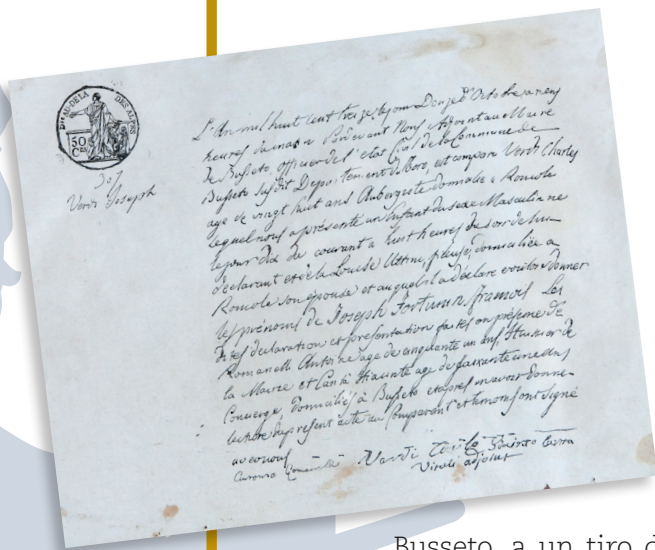 Dton AU-DE-LA DES ALPES
50
Ces
307
Verdi Joseph
L'An mil huit cent treize, le jour Douze d'Octobre, a neuf
heures du matin Pardevant Nous Adjoint au Maire
de Busseto, officier de l'etat Civil de la Commune de
Busseto susdit Departement du Taro, est comparu Verdi Charles
age de vingt huit ans Aubergiste domicilie a Roncole
lequel nous a présenté un Enfant du sexe Masculin ne
le jour dix du courant a huit heures du soir de lui
declarant et de la Louise Uttini, fileuse, domiciliée a
Roncole son épouse et auquel il a déclaré vouloir donner
les prénoms de Joseph Fortunin François Les
dites declaration et presentation faites en présence de
Romanelli Antoine age de cinquante un ans, Huissier de
la Mairie et Cantù Hiacinte age de soixante une ans
Concierge, domiciliés à Busseto et apres en avoir donné
lecture du present acte au Comparant et temoins ont signé
avec nous
Antonio Romanelli Verdi Carlo Giacinto Cantù
Vitali adjoint
Busseto, a un tiro d